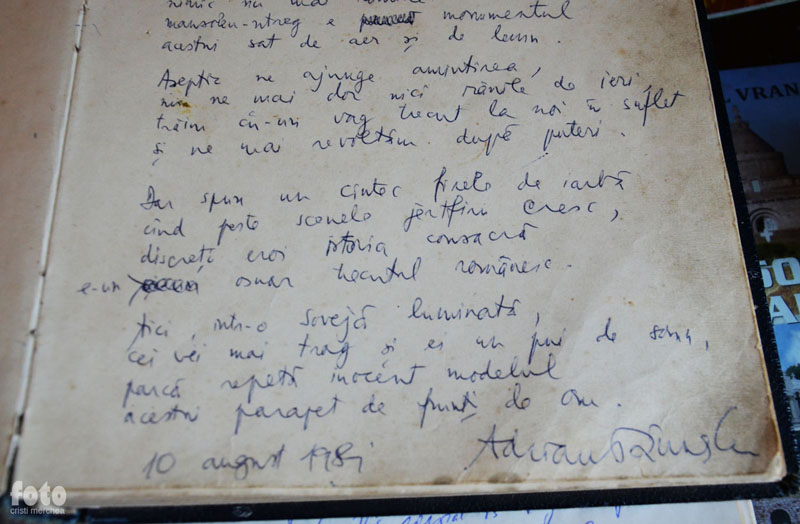 nimic nu mai
mausoleu-ntreg e monumentul
acestui sat de aer și de lemn.
Aseptic ne ajunge amintirea,
nu ne mai dor nici rănile de ieri,
trăim cu-un vag trecut la noi în suflet
și ne mai revoltăm după puteri.
Dar spun un cîntec firele de iarbă
cînd peste scenele jertfirii cresc,
discreți eroi istoria consacră
e-un osuar trecutul românesc.
Aici, într-o Sovejă luminată,
cei vii mai trag și ei un pui de somn,
parcă repetă inocent modelul
acestui parapet de frunți de om.
10 august 1981 Adrian Păunescu
VRAN
foto
cristi merchea